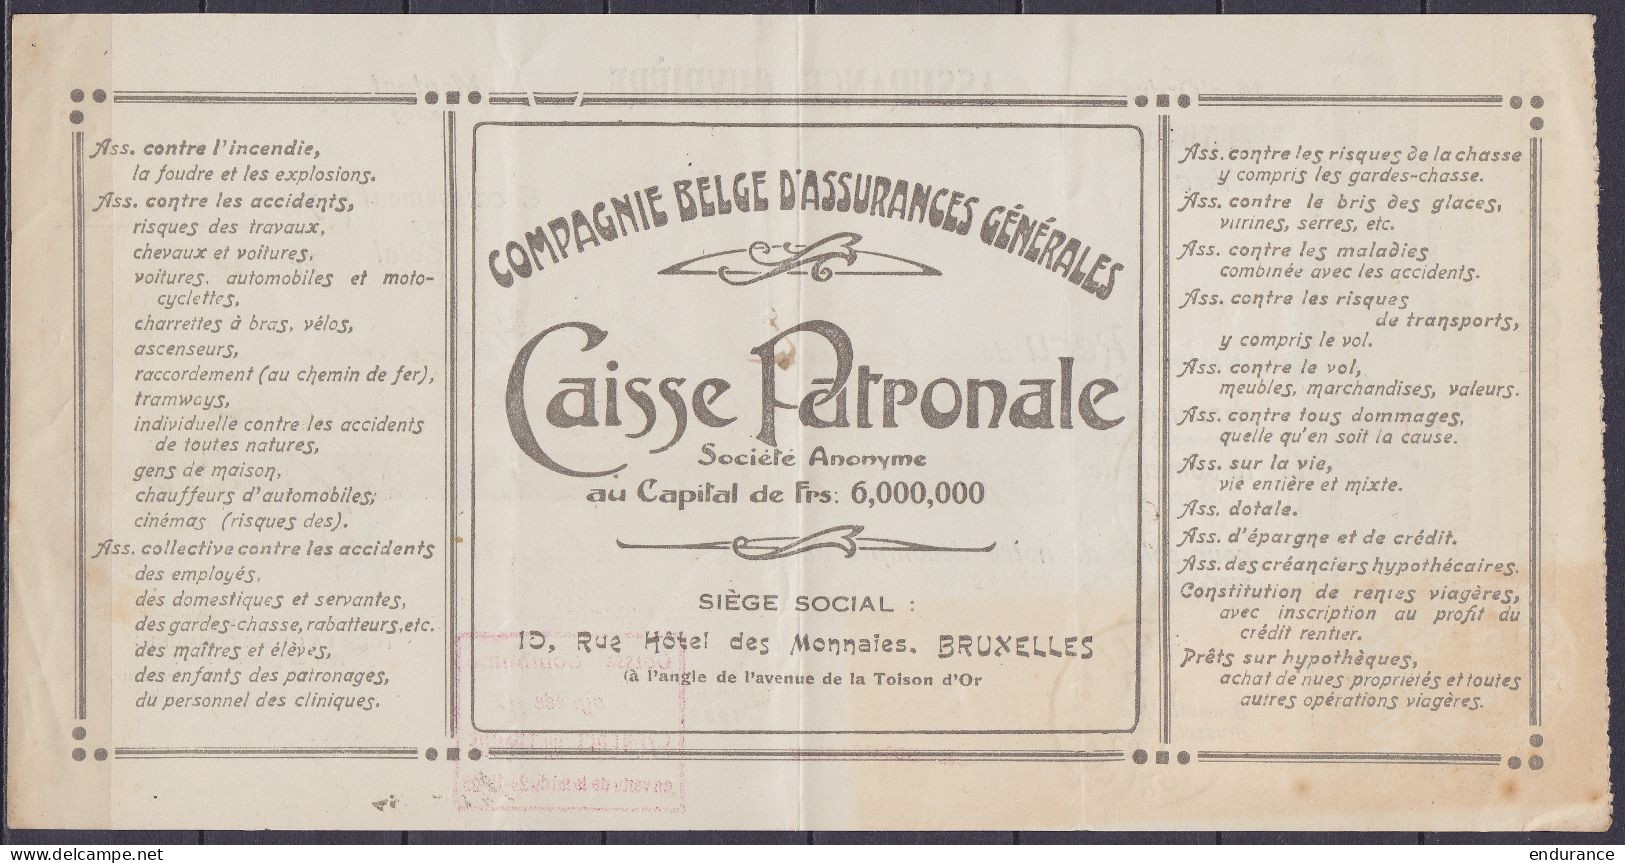 Ass. contre l'incendie,
la foudre et les explosions.
Ass. contre les accidents,
risques des travaux,
chevaux et voitures,
voitures, automobiles et moto-
cyclettes,
charrettes à bras, vélos,
ascenseurs,
raccordement (au chemin de fer),
tramways,
individuelle contre les accidents
de toutes natures,
gens de maison,
chauffeurs d'automobiles;
cinémas (risques des).
Ass. collective contre les accidents
des employés,
des domestiques et servantes,
des gardes-chasse, rabatteurs, etc.
des maîtres et élèves,
des enfants des patronages,
du personnel des cliniques.
COMPAGNIE BELGE D'ASSURANCES GÉNÉRALES
Caisse Patronale
Société Anonyme
au Capital de Frs: 6,000,000
SIÈGE SOCIAL :
Rue Hôtel des Monnaies, BRUXELLES
(à l'angle de l'avenue de la Toison d'Or
Ass. contre les risques de la chasse
y compris les gardes-chasse.
Ass. contre le bris des glaces,
vitrines, serres, etc.
Ass. contre les maladies
combinée avec les accidents.
Ass. contre les risques
de transports,
y compris le vol.
Ass. contre le vol,
meubles, marchandises, valeurs.
Ass. contre tous dommages,
quelle qu'en soit la cause.
Ass. sur la vie,
vie entière et mixte.
Ass. dotale.
Ass. d'épargne et de crédit.
Ass. des créanciers hypothécaires.
Constitution de rentes viagères,
avec inscription au profit du
crédit rentier.
Prêts sur hypothèques,
achat de nues propriétés et toutes
autres opérations viagères.
delcampe.net
endurance